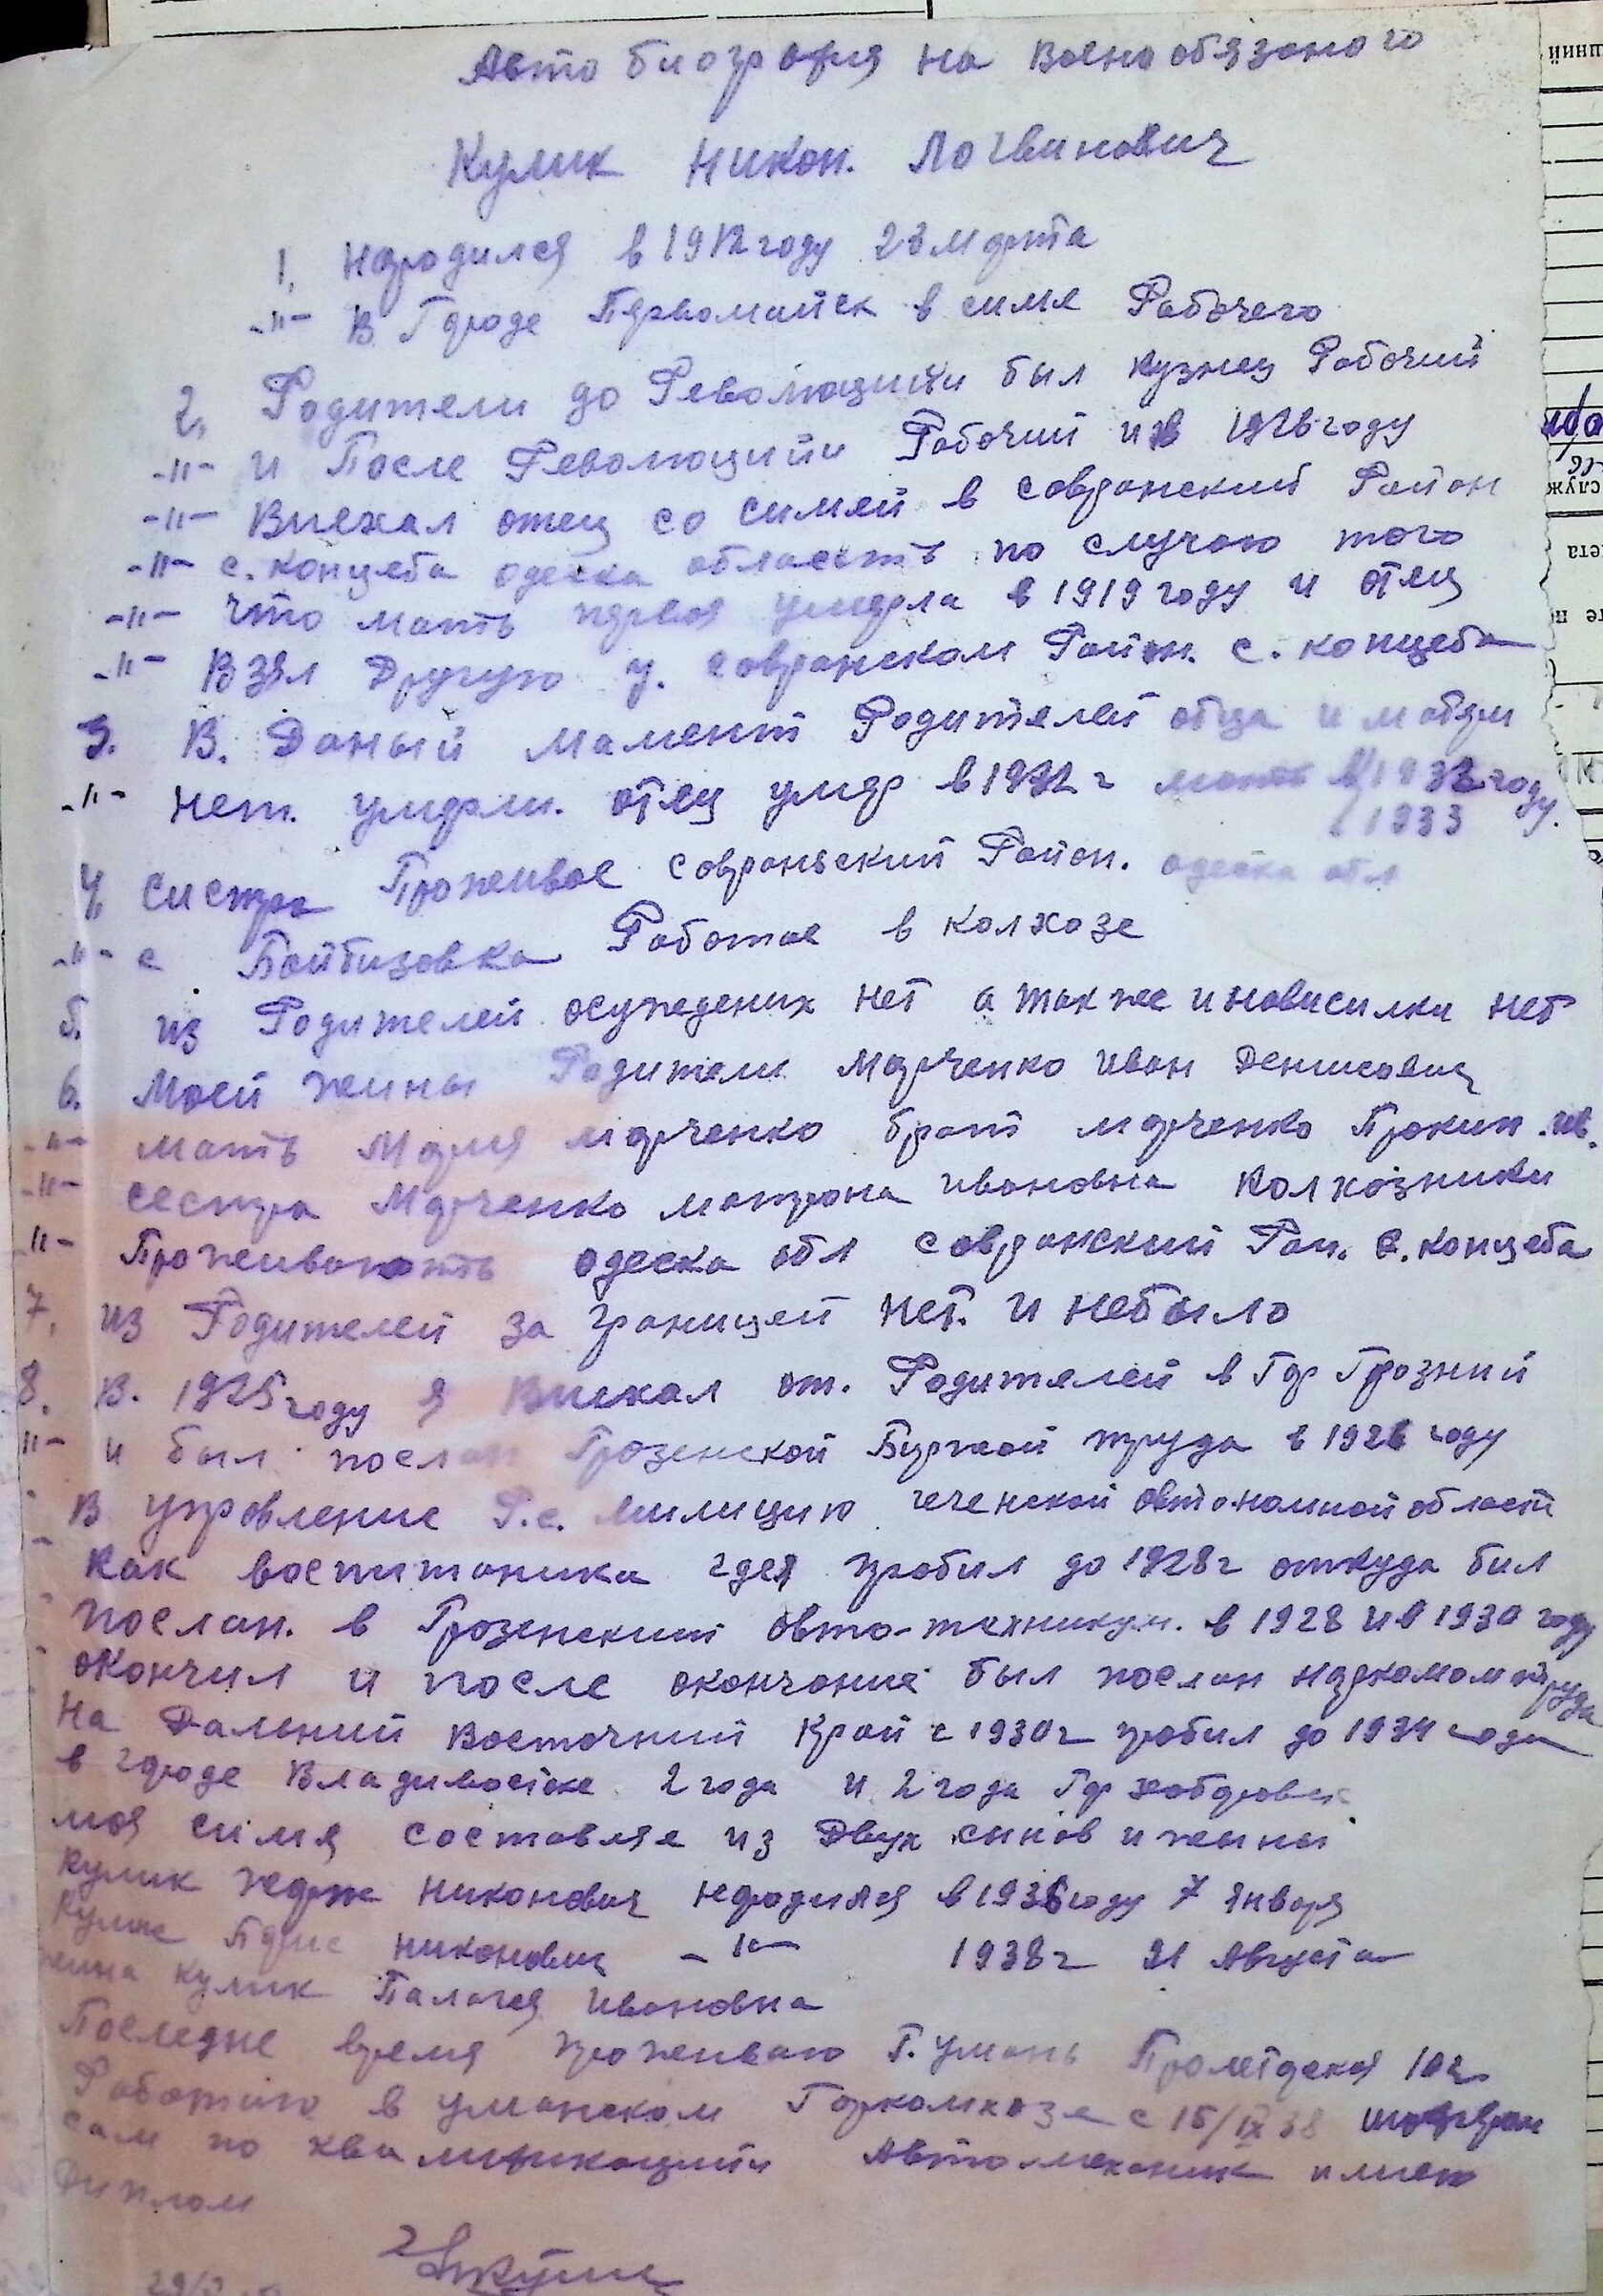 Авто биография на Воено обязаного
Кулик Никон. Логвинович
1, Народился в 1912 году 23 марта
-"- В Городе Первомайск в симе Рабочего
2, Родители до Революцийи был кузнец Рабочий
-"- и После Революцийи Рабочий и в 1926 году
-"- Виехал отец со симей в Савранский Район
-"- с. Концеба одеска область по случаю того
-"- что мать первая умерла в 1919 году и отец
-"- Взял Другую у. Савранском Район. с. Концеба
3. В. Даный мамент Родителей отца и матери
-"- нет. умерли. отец умер в 1932 г мать в 1933 году.
1933
4, систра Проживае Савраньский Район. одеска обл
-"- с Байбизовка Работае в Колхозе
5. из Родителей осуждених нет а также и нависилки нет
6. Моей жины Родители Марченко Иван Денисович
-"- мать Мария Марченко брат Марченко Прокип. Ив.
-"- сестра Марченко матрона Ивановна Колхозники
-"- Проживають одеска обл Савранский Рай. с. Концеба
7, из Родителей за границей нет. и небыло
8. В. 1925 году я Виехал от. Родителей в Гор Грозний
"- и был послан Грозенской Биржой труда в 1926 году
В управление Р.с. Милицию чеченской автономной област
как воспитаника где я пробил до 1928 г откуда бил
послан. в Грозенский авто-техникум. в 1928 и в 1930 году
окончил и после окончание был послан наркомом труда
На Дальний Восточний Край с 1930 г пробил до 1934 года
в городе Владивостке 2 года и 2 года Гор хабаровск
моя симя составляе из Двух синов и жены
Кулик Жорж Никонович народился в 1936 году 7 Января
Кулик Никонович -"- 1938 г 21 Августа
жина Кулик Палагея Ивановна
Последне время проживаю Г. Умань Пролетарская
Работаю в Уманском Горкомхозе с 15/IX 38
сам по квалификацийи Автомеханик имею
Диплом